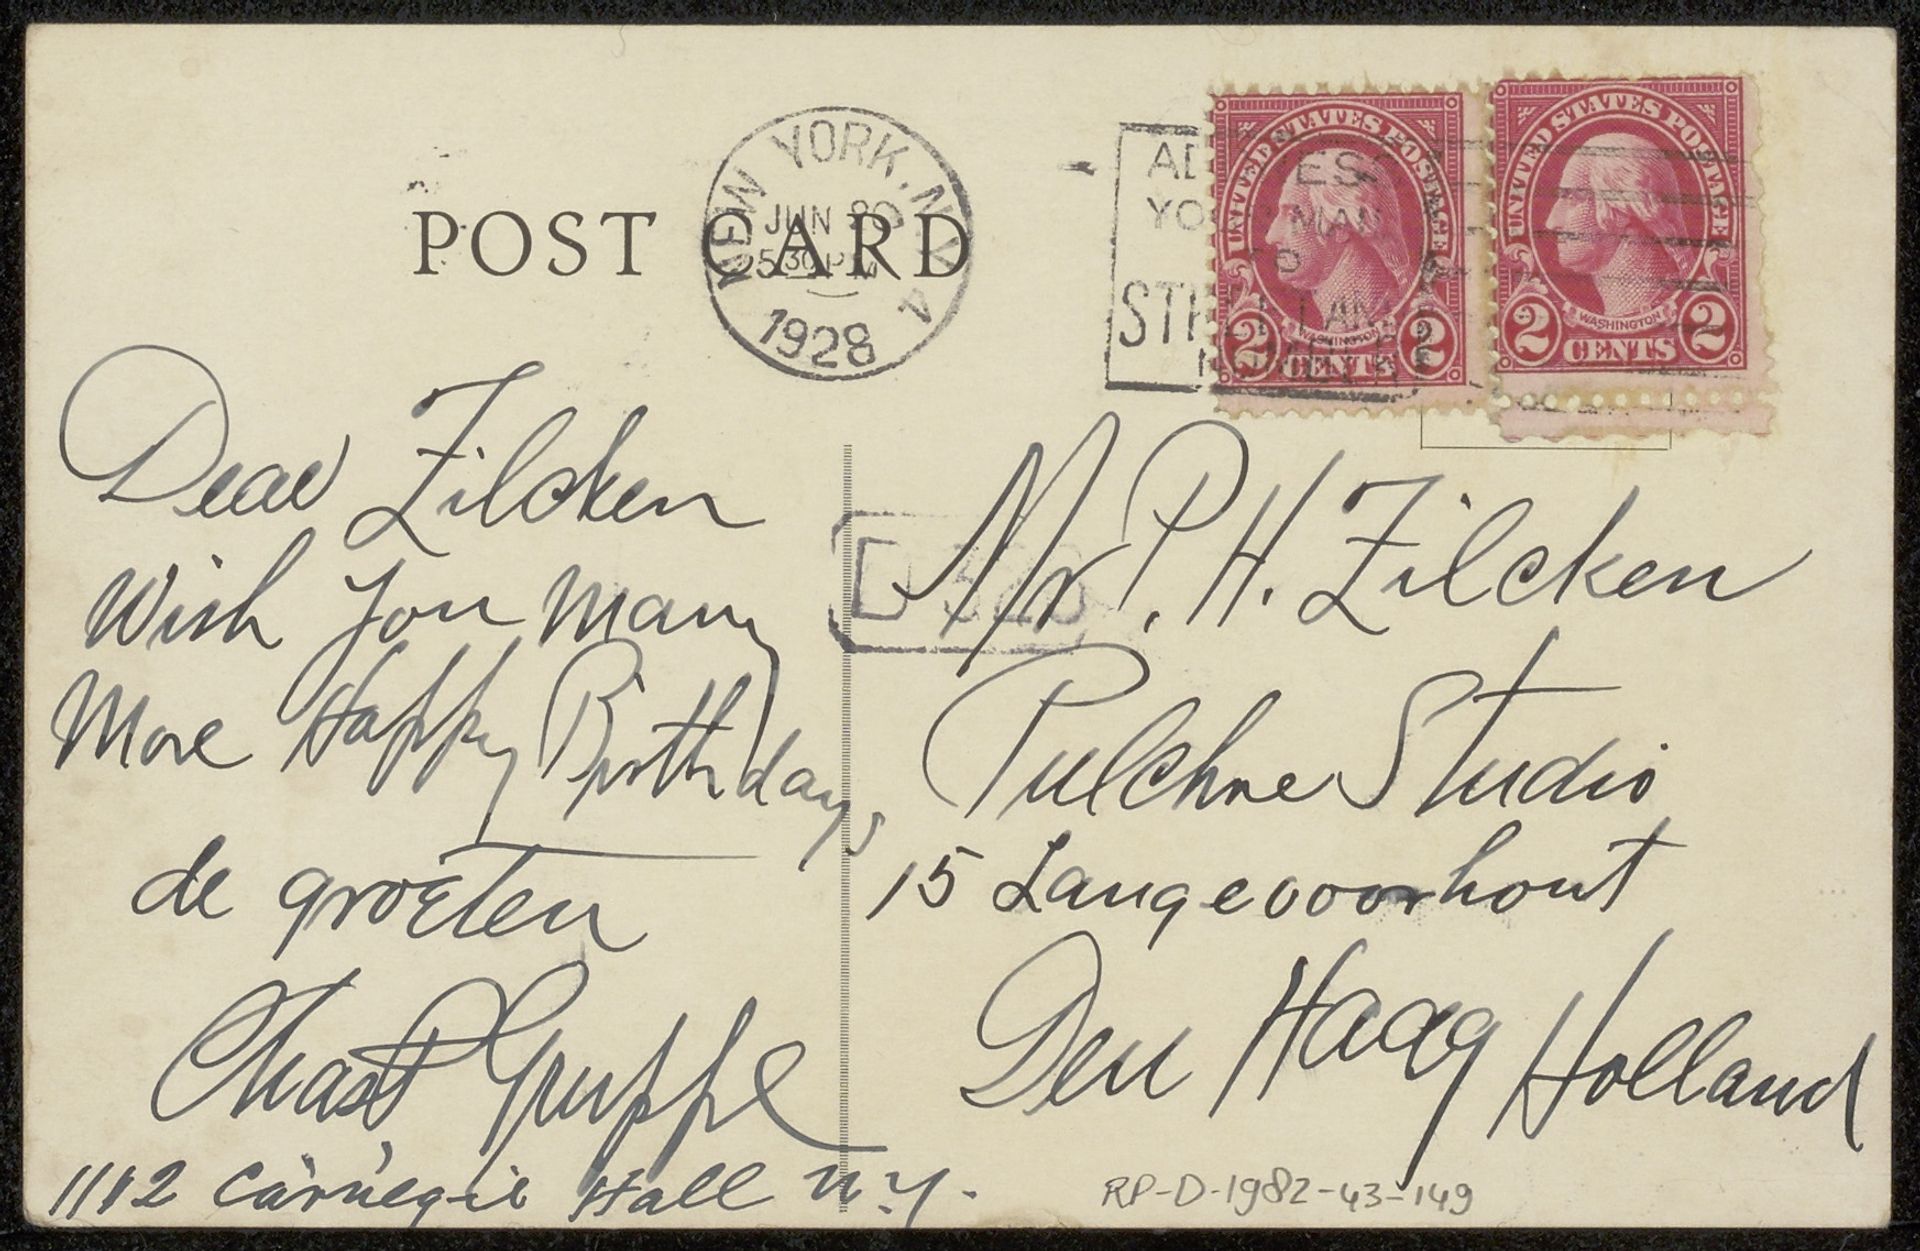 POST CARD
NEW YORK, N.Y.
JUN
5 30 PM
1928
ADDRESS
YOUR MAIL
TO
STREET AND
NUMBER
UNITED STATES POSTAGE
WASHINGTON
2 CENTS 2
UNITED STATES POSTAGE
WASHINGTON
2 CENTS 2
Dear Zilcken
Wish You Many
More Happy Birthdays
de groeten
Chas P Gruppe
1112 Carnegie Hall N.Y.
Mr P. H. Zilcken
Pulchre Studio
15 Langevoorhout
Den Haag Holland
RP-D-1982-43-149